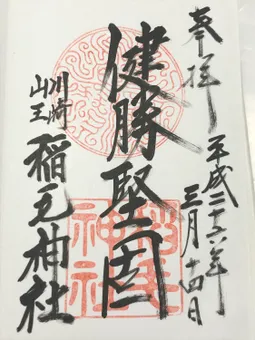 奉拝
平成二十六年
三月十四日
健勝堅固
川崎
山王
稲毛神社